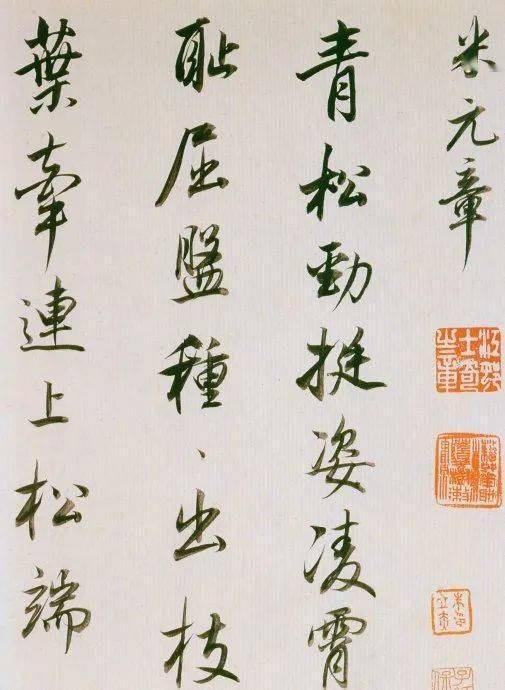 米元章
青松勁挺姿凌霄
耻屈盤種、出枝
葉牽連上松端